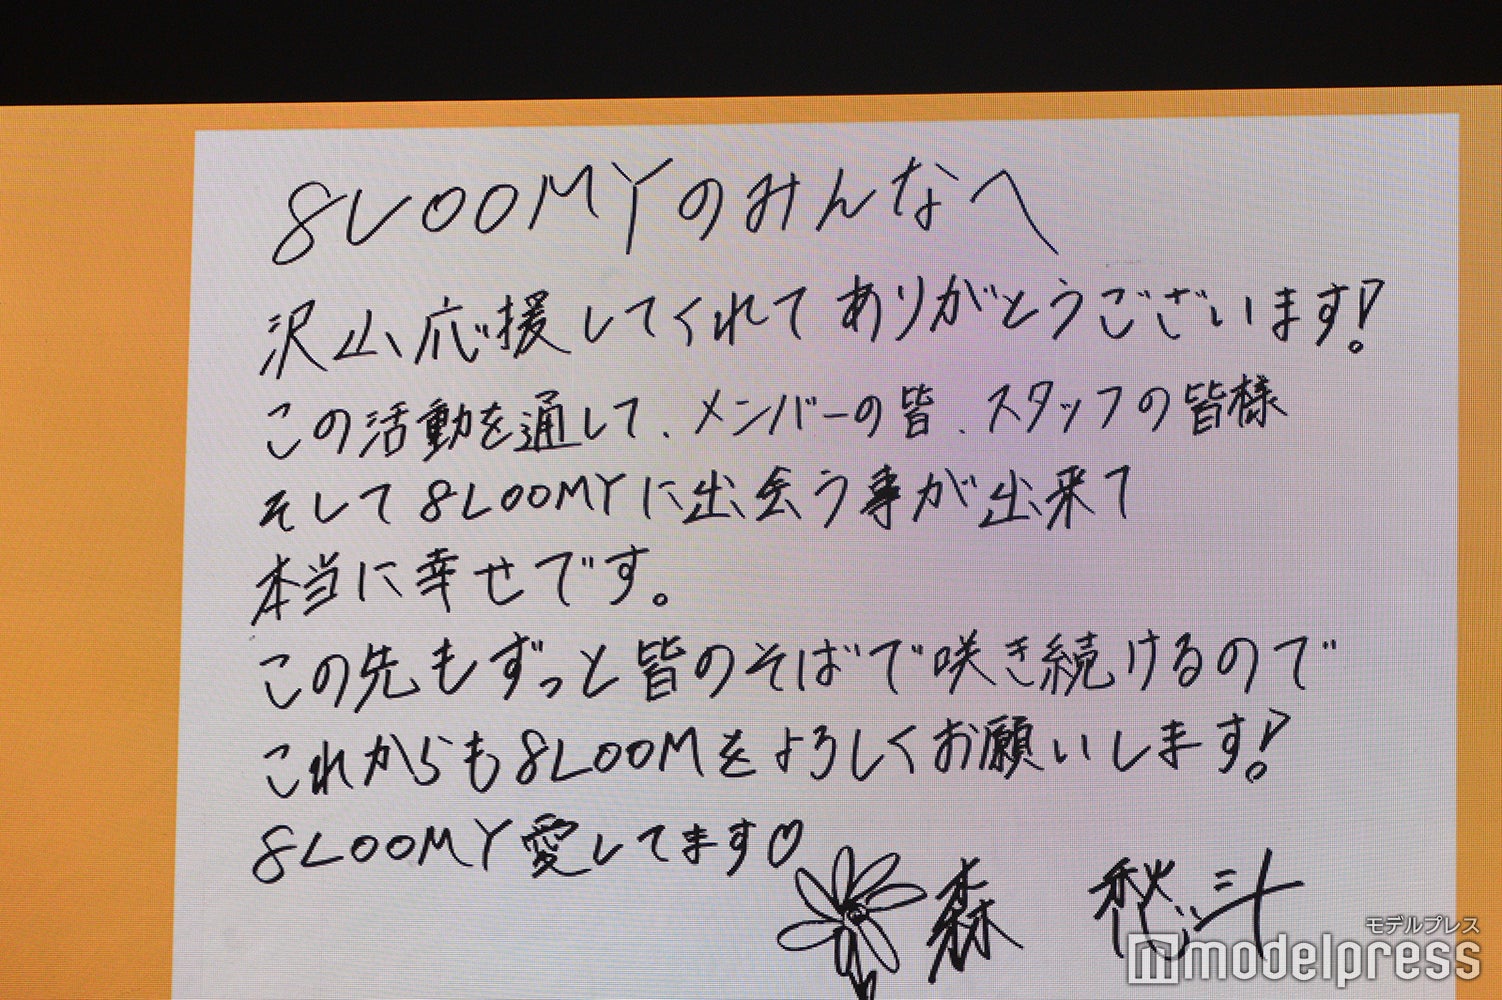 8LOOMYのみんなへ
沢山応援してくれてありがとうございます!
この活動を通して、メンバーの皆、スタッフの皆様
そして8LOOMYに出会う事が出来て
本当に幸せです。
この先もずっと皆のそばで咲き続けるので
これからも8LOOMをよろしくお願いします!
8LOOMY愛してます♡
森 愁斗
モデルプレス
modelpress